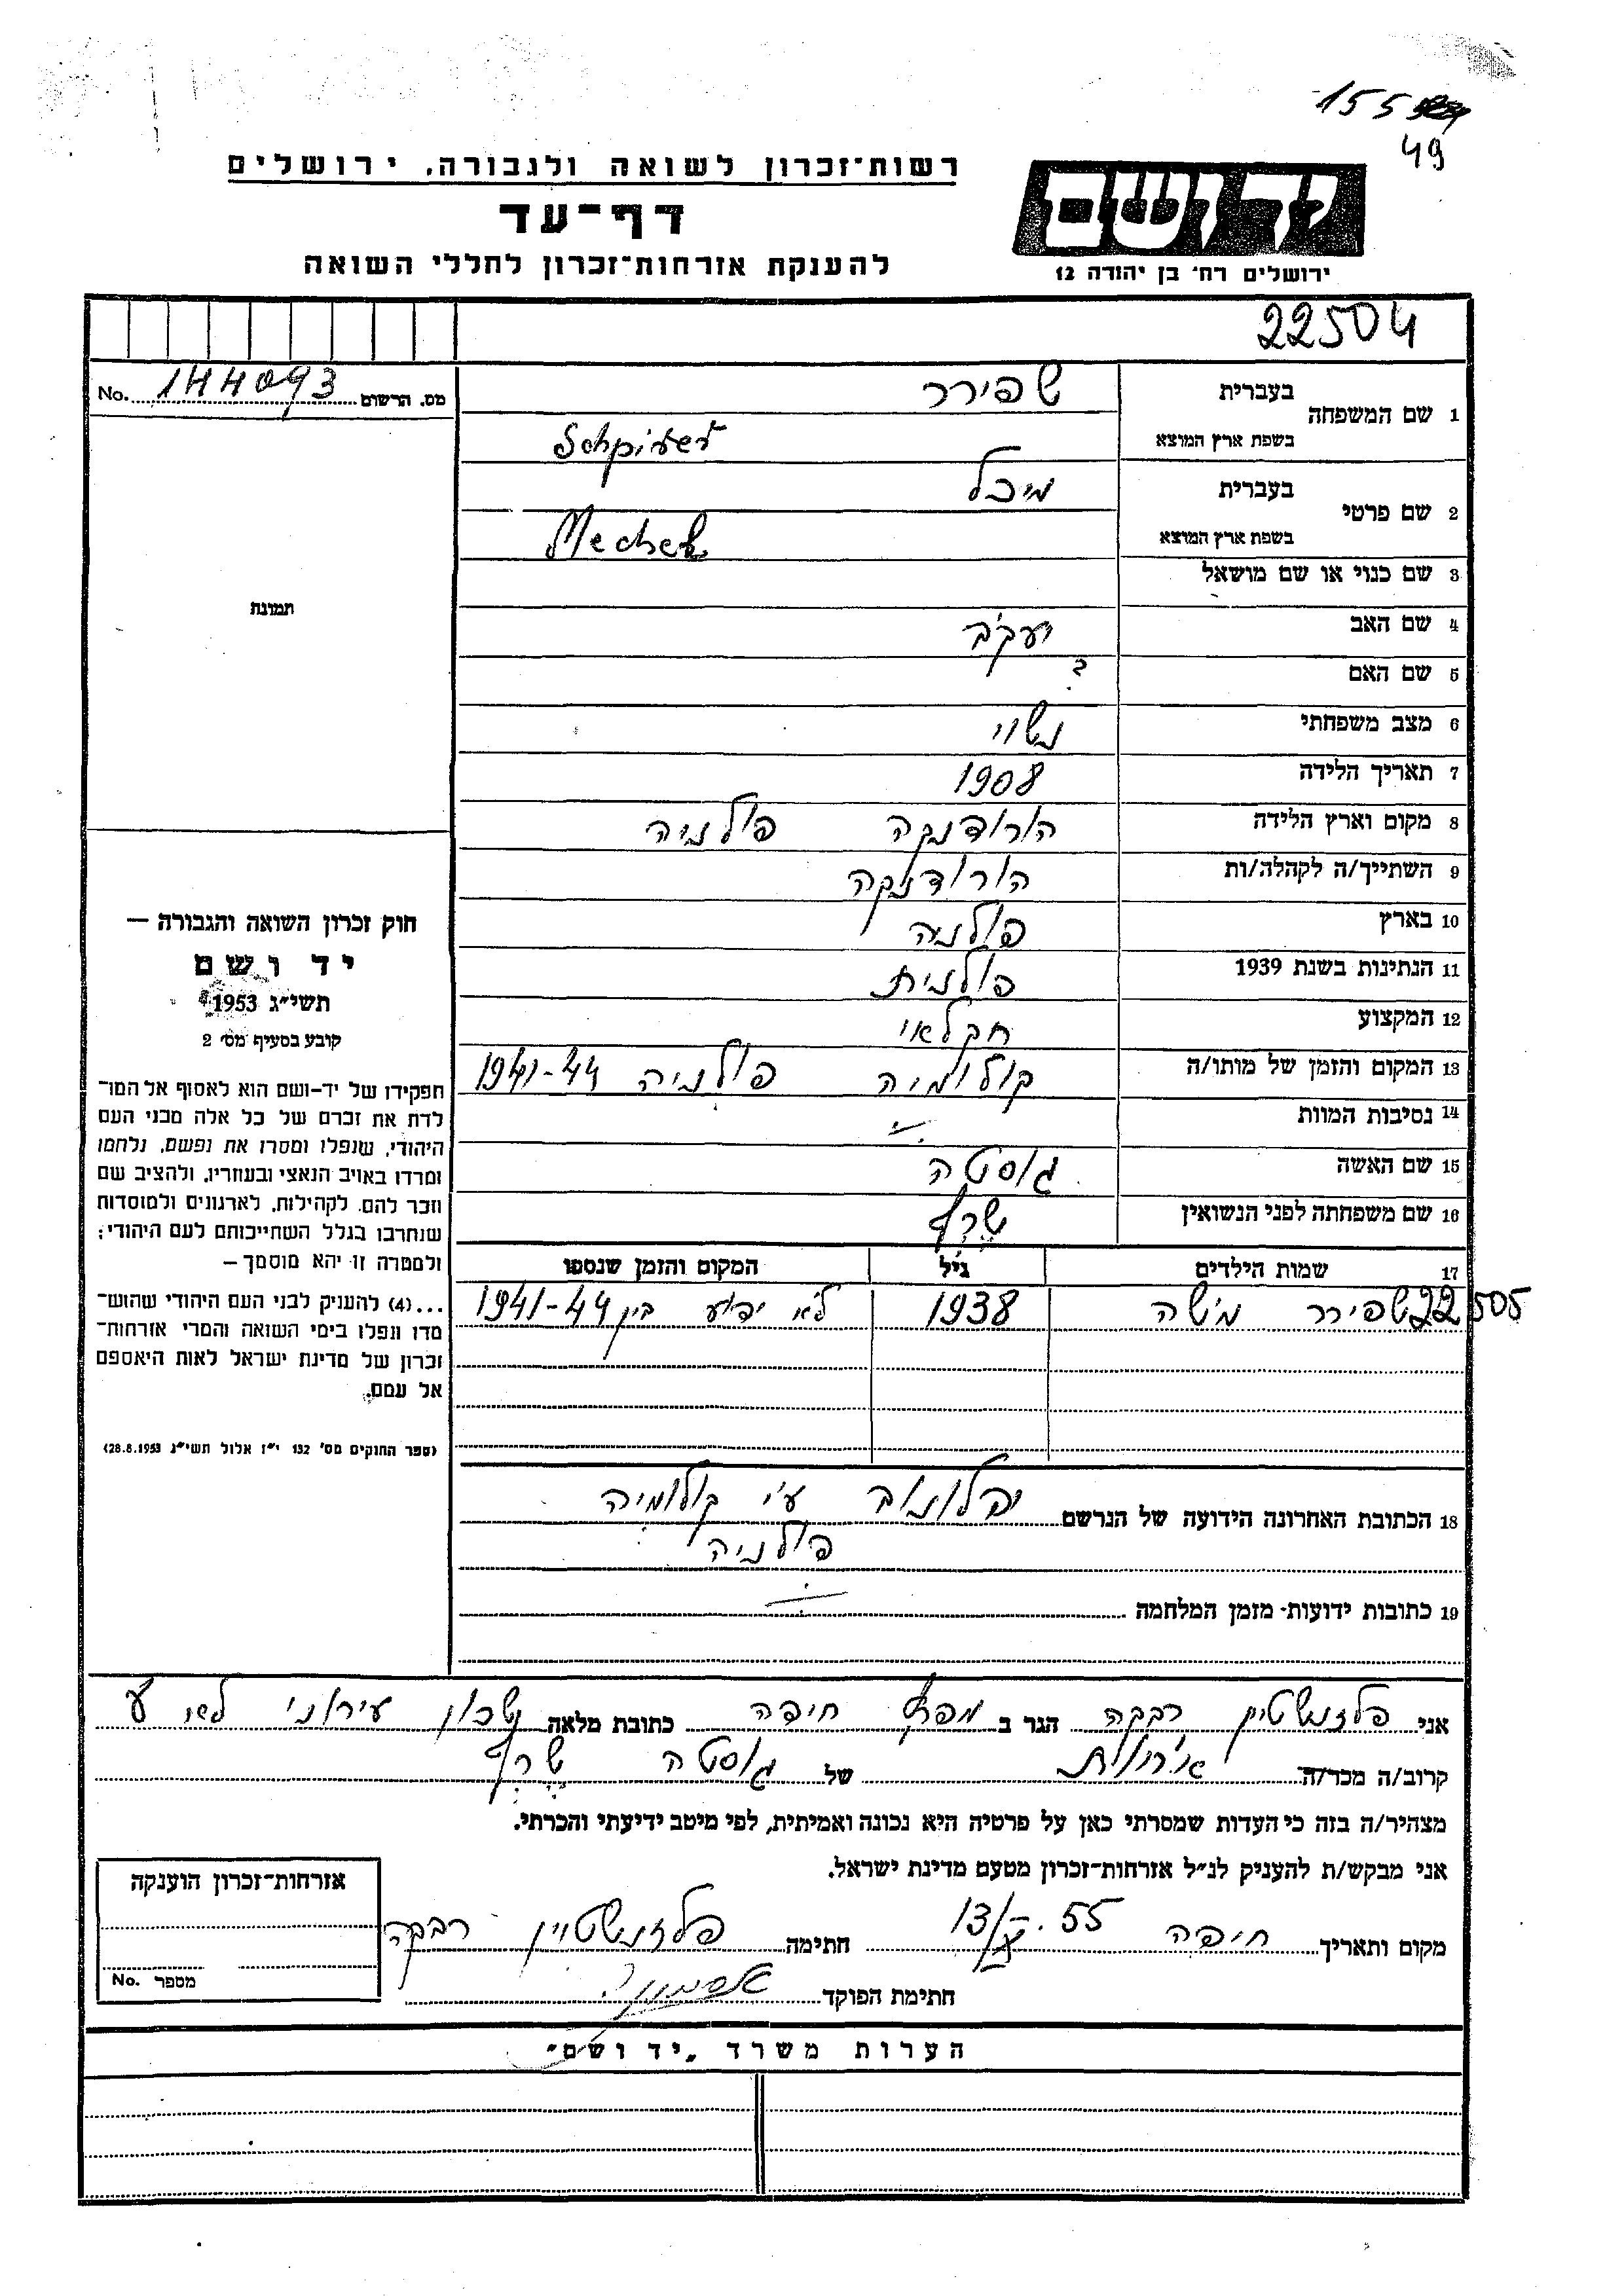 155
49
רשות־זכרון לשואה ולגבורה, ירושלים
דף־עד
להענקת אזרחות־זכרון לחללי השואה
יד ושם
ירושלים רח' בן יהודה 12
22504
מס. הרשום No. 144093
תמונה
1 שם המשפחה בעברית שפירר
בשפת ארץ המוצא Schpirer
2 שם פרטי בעברית מיכל
בשפת ארץ המוצא
3 שם כנוי או שם מושאל
4 שם האב יעקב
5 שם האם ?
6 מצב משפחתי נשוי
7 תאריך הלידה 1908
8 מקום וארץ הלידה הורודנקה פולניה
9 השתייך/ה לקהלה/ות הורודנקה
10 בארץ פולניה
11 הנתינות בשנת 1939 פולנית
12 המקצוע חקלאי
13 המקום והזמן של מותו/ה קולומיה פולניה 1941-44
14 נסיבות המוות
15 שם האשה גוסטה
16 שם משפחתה לפני הנשואין שרף
17 שמות הילדים גיל המקום והזמן שנספו
22505 שפירר משה 1938 לא ידוע בין 1941-44
18 הכתובת האחרונה הידועה של הנרשם יבלונוב ע"י קולומיה
פולניה
19 כתובות ידועות מזמן המלחמה
חוק זכרון השואה והגבורה —
יד ושם
תשי"ג 1953
קובע בסעיף מס' 2
תפקידו של יד-ושם הוא לאסוף אל המו־
לדת את זכרם של כל אלה מבני העם
היהודי, שנפלו ומסרו את נפשם, נלחמו
ומרדו באויב הנאצי ובעוזריו, ולהציב שם
וזכר להם, לקהילות, לארגונים ולמוסדות
שנחרבו בגלל השתייכותם לעם היהודי;
ולמטרה זו יהא מוסמך —
...(4) להעניק לבני העם היהודי שהוש־
מדו ונפלו בימי השואה והמרי אזרחות־
זכרון של מדינת ישראל לאות היאספם
אל עמם.
(ספר החוקים מס' 132 י"ז אלול תשי"ג 28.8.1953)
אני פלזנשטין רבקה הגר ב חיפה כתובת מלאה שכון עירוני
קרוב/ה מכר/ה של גוסטה שרף
מצהיר/ה בזה כי העדות שמסרתי כאן על פרטיה היא נכונה ואמיתית, לפי מיטב ידיעתי והכרתי.
אני מבקש/ת להעניק לנ"ל אזרחות־זכרון מטעם מדינת ישראל.
מקום ותאריך חיפה 13/X.55 חתימה פלזנשטיין רבקה
חתימת הפוקד
אזרחות־זכרון הוענקה
מספר No.
הערות משרד „יד ושם"